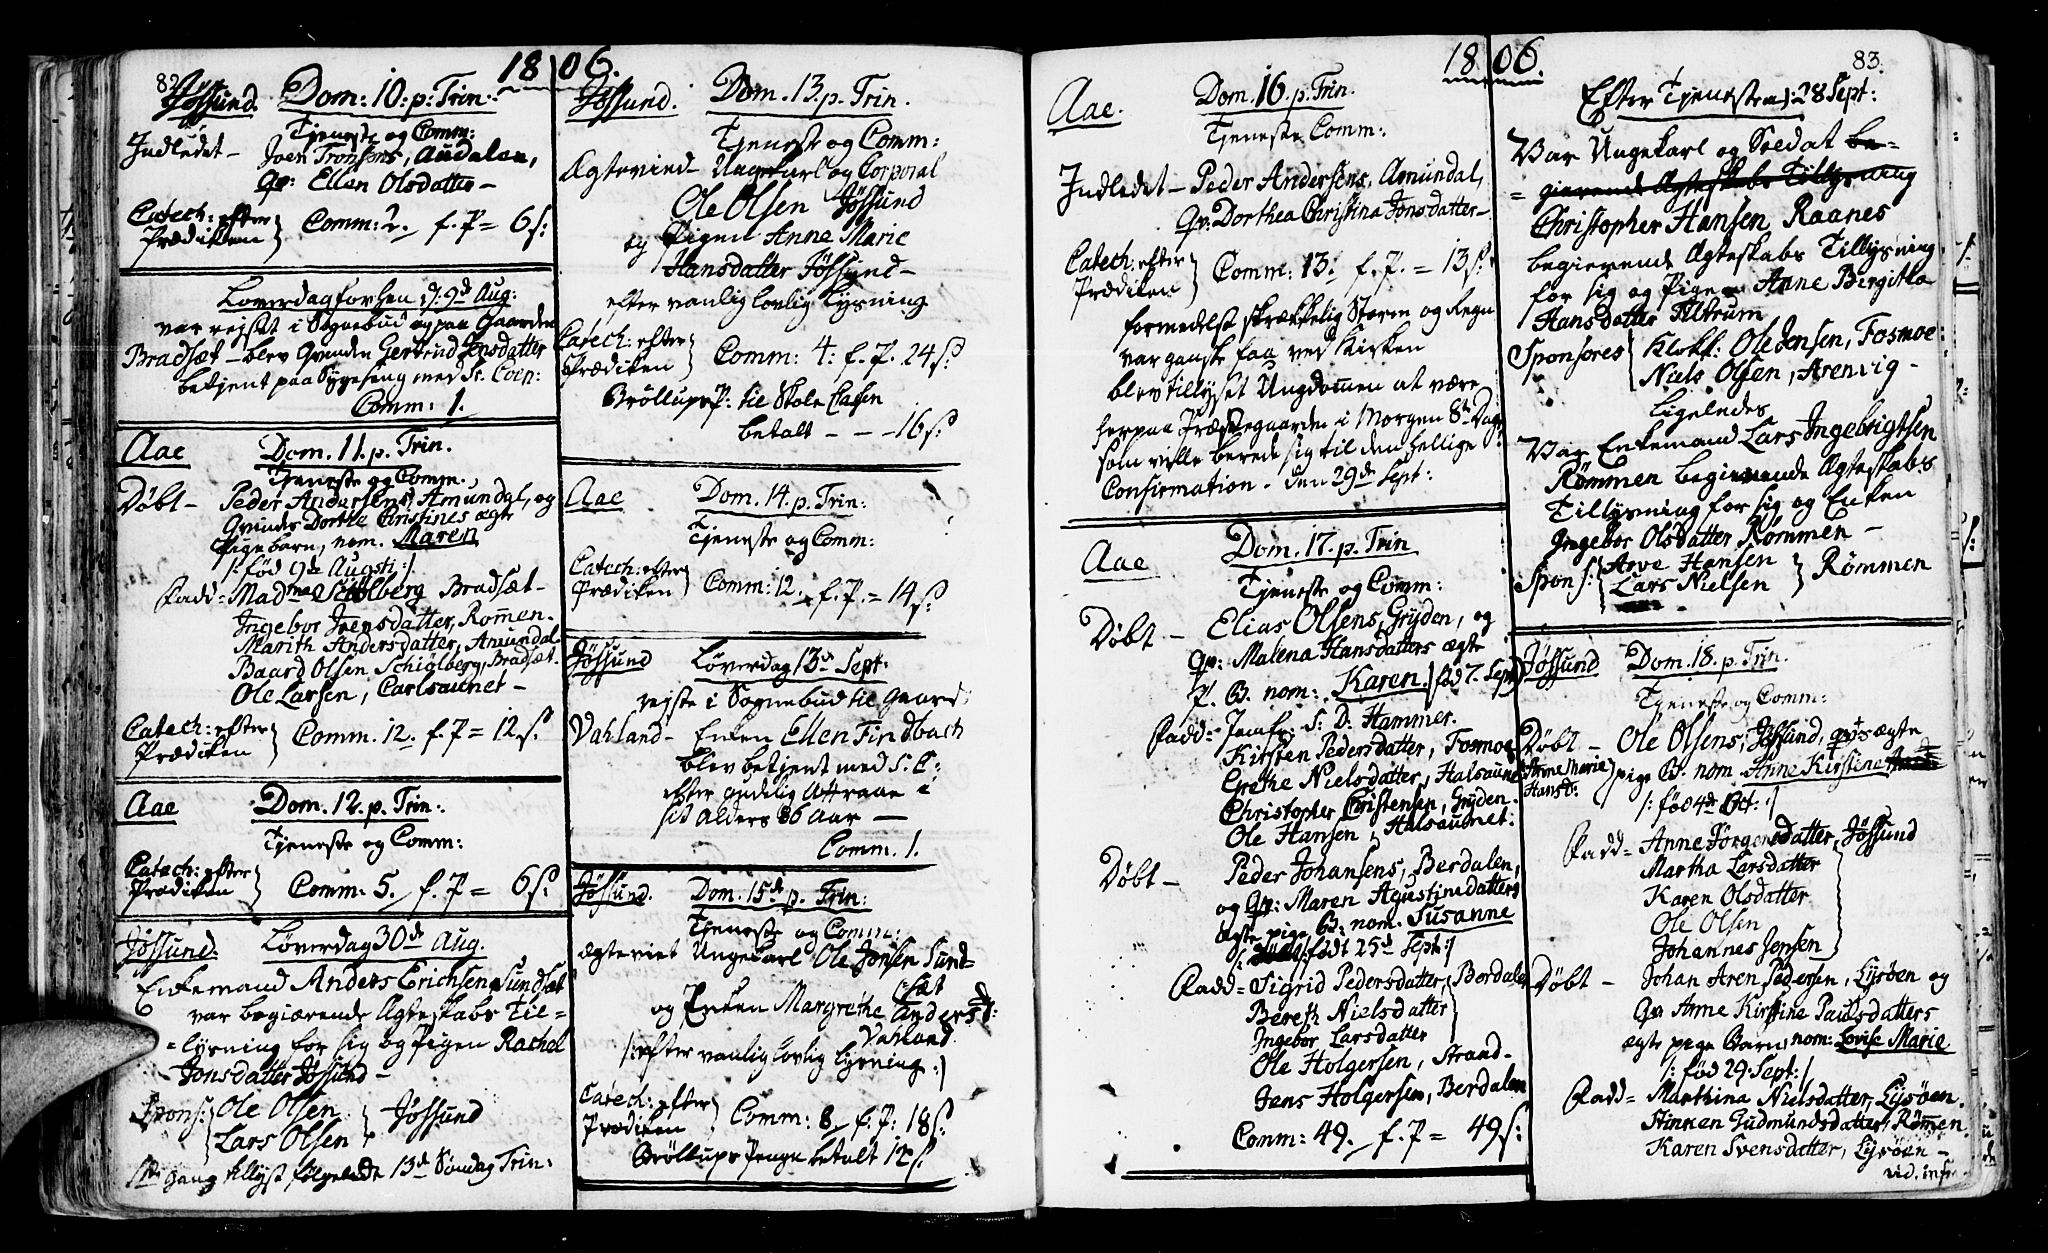 82.
1806.
Jössund. Dom: 10: p: Trin:
Tjeneste og Comm:
Indledet - Joen Tronsens, Audalen,
Qv: Ellen Olsdatter -
Catech: efter
Prædiken } Comm: 2. f. P = 6 s:
Løverdag forhen d: 9d Aug:
var rejst i Sognebud og paa Gaarden
Bradsæt - blev Qvinden Gertrud Jensdatter
betjent paa Sygeseng med Sr. Coen:
Comm: 1.
Aae Dom. 11. p. Trin.
Tjeneste og Comm.
Døbt - Peder Andersens, Amundal, og
Qvindes Dorthe Christines ægte
Pigebarn, nom. Maren
/: fød 9de Augsti :/
Fadd = Madme Schiölberg Bradsæt -
Ingebor Jvensdatter, Rømen.
Marith Andersdatter, Amundal
Baard Olsen Schiölberg, Bradsæt.
Ole Larsen, Carlsaunet -
Catech: efter
Prædiken } Comm. 12. f. P = 12 s:
Aae Dom. 12. p. Trin:
Tjeneste og Comm:
Catech: efter
Prædiken } Comm: 5. f. P = 6 s:
Jössund. Løverdag 30de Aug.
Enkemand Anders Erichsen Sundsæt
var begiærende Ægteskabs Til=
=lysning for sig og Pigen Rachel
Jonsdatter Jössund -
Spons: { Ole Olsen
Lars Olsen } Jössund
1ste Gang tillyst følgende 13d Søndag Trin:
Jössund. Dom. 13. p. Trin.
Tjeneste og Comm:
Ægteviet - Ungekarl og Corporal
Ole Olsen Jössund
og Pigen Anne Marie
Hansdatter Jössund -
efter vanlig lovlig Lysning
Catech: efter
Prædiken } Comm: 4: f. P. 24 s:
Bröllups P: til Skole Cassen
betalt - - - 16 s:
Aae Dom. 14. p. Trin:
Tjeneste og Comm:
Catech: efter
Prædiken } Comm: 12. f. P. = 14 s:
Jössund Løverdag 13d Sept:
rejste i Sognebud til Gaard:
Vahland - Enken Ellen Findbach
blev betjent med S. C:
efter gudelig Attraae i
sit Alders 86 Aar -
Comm. 1.
Jössund. Dom. 15de p. Trin:
Tjeneste og Comm:
Ægteviet Ungekarl Ole Jonsen Sund=
sæt
og Enken Margrethe Andersd:
Vahland.
/: efter vanlig lovlig Lysning :/
Catech: efter
Prædiken } Comm: 8. f. P: 18 s:
Bröllups Penge betalt 12 s.
1806.
83.
Aae. Dom. 16. p. Trin.
Tjeneste Comm:
Indledet - Peder Andersens, Amundal,
Qv: Dorthea Christina Jonsdatter -
Catech: efter
Prædiken } Comm: 13. f. P. = 13 s:
formedelst skrækkelig Storm og Regn
var ganske faa ved Kirken
blev tillyset Ungdommen at være
her paa Præstegaarden i Morgen 8te Dage
som ville berede sig til den hellige
Confirmation - den 29de Sept:
Aae Dom. 17. p. Trin
Tjeneste og Comm:
Døbt - Elias Olsens, Gryden, og
Qv: Malena Hansdatters ægte
P. B. nom: Karen. / fød 7. Sept:/
Fadd: Jomfr. S: D. Hammer.
Kirsten Pedersdatter, Fosmoe
Grethe Nielsdatter, Halsaunet
Christopher Christensen, Gryden.
Ole Hansen, Halsaunet:
Døbt - Peder Johansens, Berdalen,
og Qv: Maren Agustinidatters
ægte pige B: nom. Susanne
/: født 25d Sept: /
Fadd = Sigrid Pedersdatter, Berdalen
Bereth Nielsdatter
Ingebor Larsdatter
Ole Holgersen, Strand -
Jens Holgersen, Berdalen
Comm: 49. f. P = 49 s:
Efter Tjenesten d: 28 Sept:
Var Ungekarl og Soldat be=
=gierende Ægteskabs Tillysning
Christopher Hansen Raanes
begierende Ægteskabs Tillysning
for sig og Pigen Anne Bergitha
Hansdatter Altrum
Sponsores { Klokk: Ole Jensen, Fosmoe:
Niels Olsen, Arenvig -
Ligeledes
Var Enkemand Lars Ingebrigtsen
Rømmen begierende Ægteskabs
Tillysning for sig og Enken
Ingebor Olsdatter Rømmen -
Spons: { Arve Hansen
Lars Nielsen } Rømmen
Jössund Dom. 18. p. Trin.
Tjeneste og Comm:
Døbt - Ole Olsens, Jössund, qvs ægte
Anne Marie
Hansd: } pige B. nom. Anne Kirstine
/: fød 4de Oct: /
Fadd = Anne Jörgensdatter, Jössund
Martha Larsdatter
Karen Olsdatter
Ole Olsen
Johannes Jensen
Døbt - Johan Aren Pedersen, Lysøen og
Qv: Anne Kirstine Paulsdatters
ægte pige Barn, nom: Lovise Marie
/: fød 29. Sept: /
Fadd = Marthina Nielsdatter, Lysøen.
Stinken Gudmundsdatter, Rømen.
Karen Svensdatter, Lysøen -
vid. infr